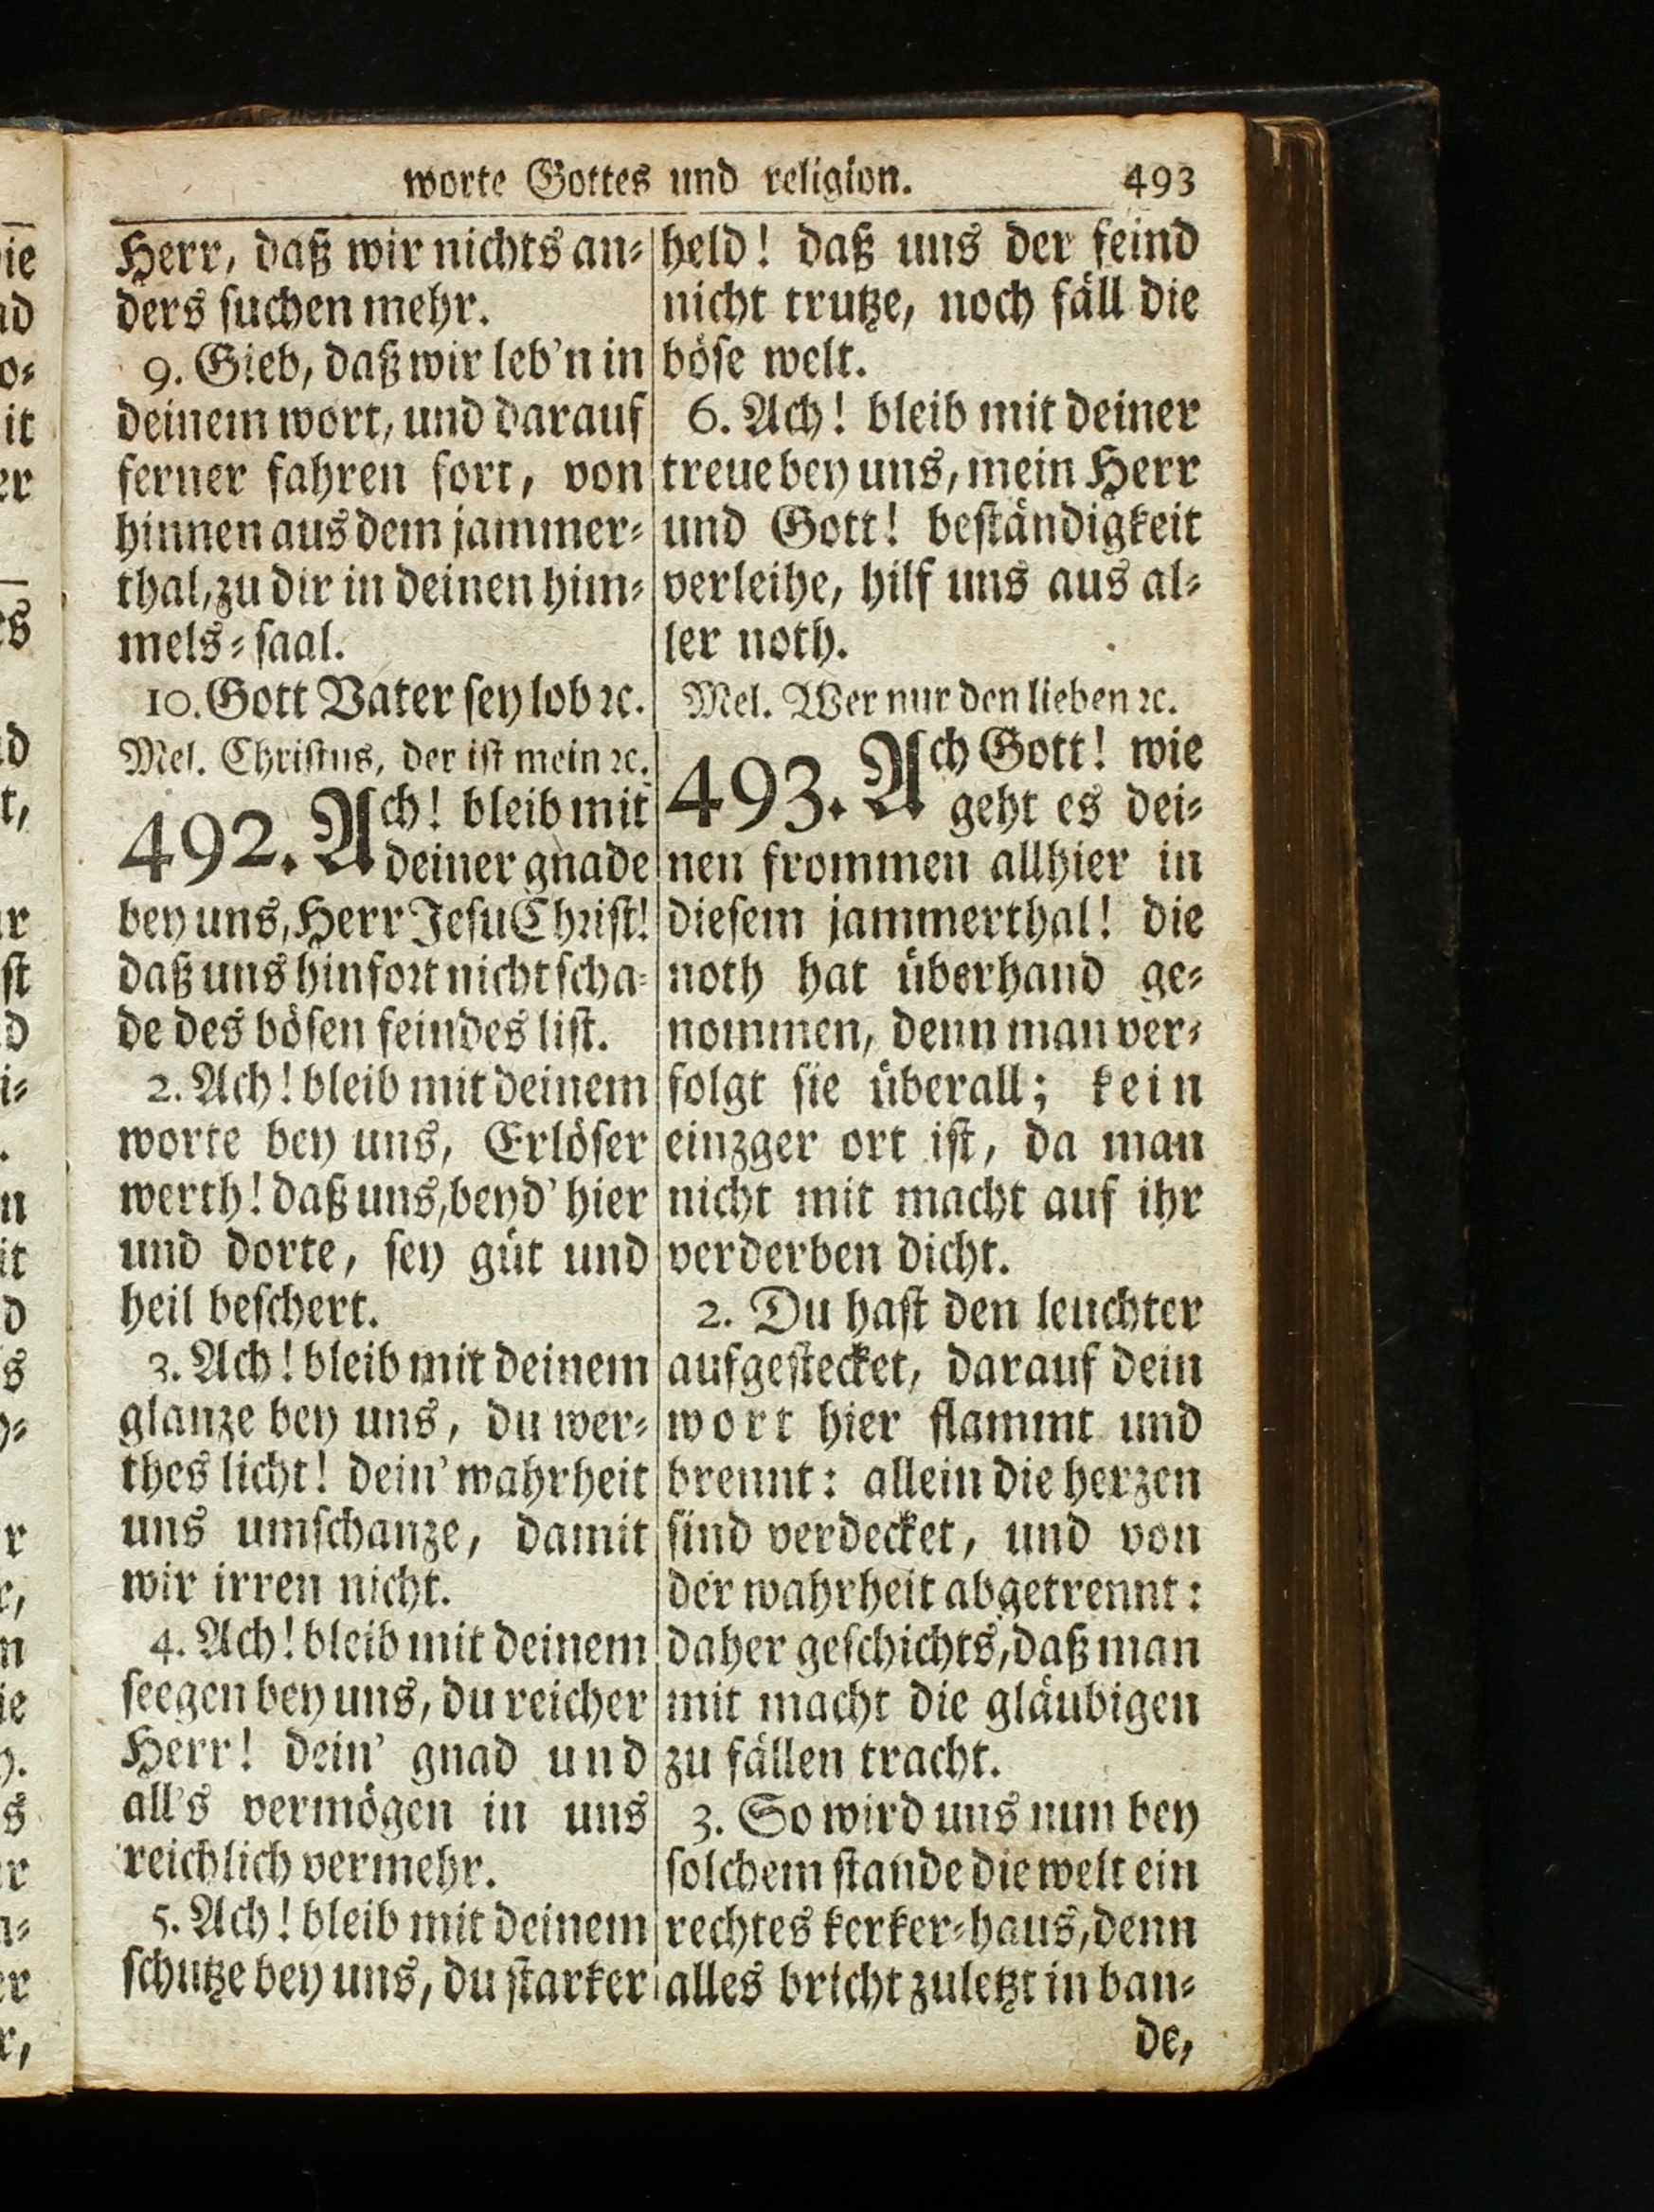 worte Gottes und religion. 493
Herr, daß wir nichts an⸗
ders ſuchen mehr.
9. Gieb, daß wir leb'n in
deinem wort, und darauf
ferner fahren fort, von
hinnen aus dem jammer⸗
thal, zu dir in deinen him⸗
mels⸗ſaal.
10. Gott Vater ſey lob ꝛc.
Mel. Chriſtus, der iſt mein ꝛc.
492. Ach! bleib mit
deiner gnade
bey uns, Herr Jeſu Chriſt!
daß uns hinfort nicht ſcha⸗
de des böſen feindes liſt.
2. Ach! bleib mit deinem
worte bey uns, Erlöſer
werth! daß uns, beyd' hier
und dorte, ſey güt und
heil beſchert.
3. Ach! bleib mit deinem
glanze bey uns, du wer⸗
thes licht! dein' wahrheit
uns umſchanze, damit
wir irren nicht.
4. Ach! bleib mit deinem
ſeegen bey uns, du reicher
Herr! dein' gnad und
all's vermögen in uns
reichlich vermehr.
5. Ach! bleib mit deinem
ſchutze bey uns, du ſtarker
held! daß uns der feind
nicht trutze, noch fäll die
böſe welt.
6. Ach! bleib mit deiner
treue bey uns, mein Herr
und Gott! beſtändigkeit
verleihe, hilf uns aus al⸗
ler noth.
Mel. Wer nur den lieben ꝛc.
493. Ach Gott! wie
geht es dei⸗
nen frommen allhier in
dieſem jammerthal! die
noth hat überhand ge⸗
nommen, denn man ver⸗
folgt ſie überall; kein
einzger ort iſt, da man
nicht mit macht auf ihr
verderben dicht.
2. Du haſt den leuchter
aufgeſtecket, darauf dein
wort hier flammt und
brennt: allein die herzen
ſind verdecket, und von
der wahrheit abgetrennt:
daher geſchichts, daß man
mit macht die gläubigen
zu fällen tracht.
3. So wird uns nun bey
ſolchem ſtande die welt ein
rechtes kerker⸗haus, denn
alles bricht zuletzt in ban⸗
de,